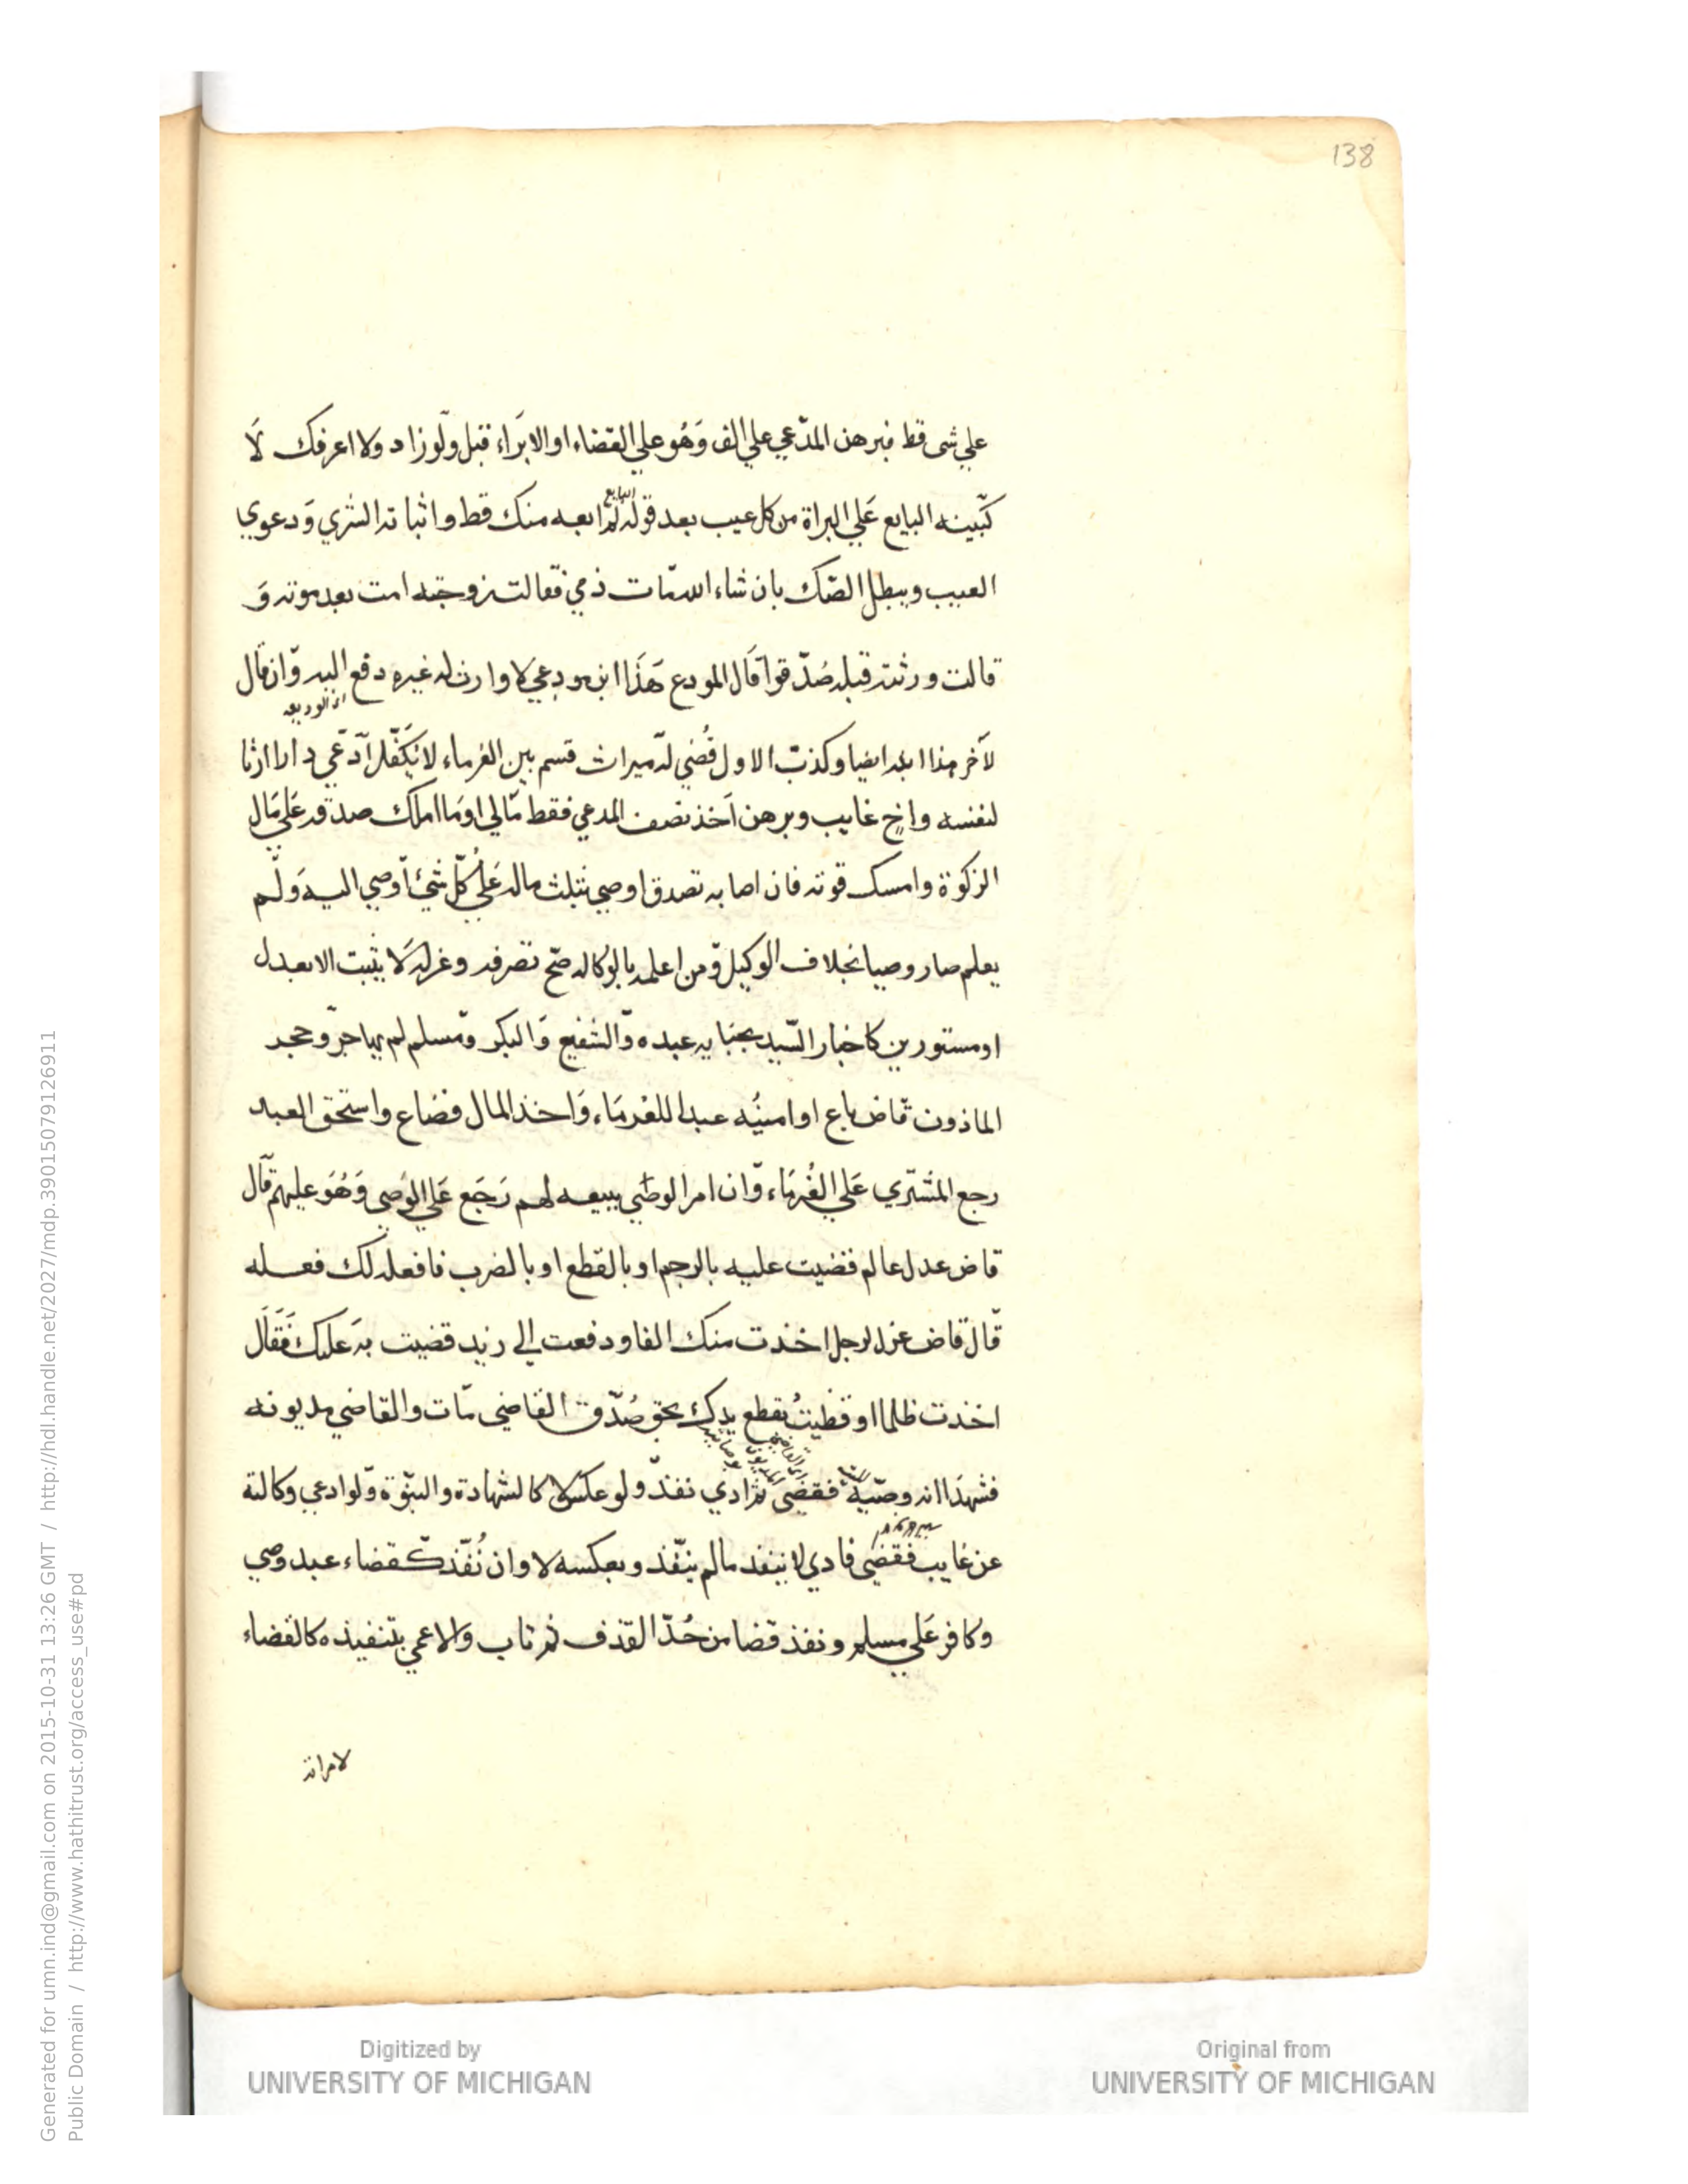 138
علي شى قط فبرهن المدّعي علي الف وَهُو علي القضاء او الابرَاء قبل ولَو زاد ولا اعرفك لَا
كبّينه البايع عَلي البراة من كل عيب بعد قوله لم ابعه منك قط واثباته الشري وَدعوي
البايع
العيب ويبطل الصّك بان شاء الله مّات ذمي فقالت زوجته امت بعد موته وَ
قالت ورثته قبله صُدّقوا قَال المودع هَذَا ابن مودعي لا وارث له غيره دفع اليه وّان قال
اي الوديعه
لآخر هذا ابنه ايضا وكذب الاول قُضي له ميراث قسم بين الغرماء لا يُكَفّل ادّعي دارا ارثا
لنفسه واخٍ غايب وبرهن اَخذ نصف المدعي فقط مّالي اومَا املك صدقه عَلي مَال
الزكوة وامسك قوته فان اصابه تصدق اوصي بثلث ماله عَلي كُلّ شيْ اَوصي اليه وَلَم
يعلم صار وصيا بخلاف الوكيل وّمن اعلمه بالوكاله صَح تصرفه وعزله لَا يثبت الا بعدل
او مستورين كاخبار السّيد بجنايه عبده وَالشفيع وَالبكر ومّسلم لم يهاجر وّحجر
الماذون قّاض باع او امينُه عبدا للغرمَاء وَاخذ المال فضاع واستحق العبد
رجع المشتري عَلي الغُرمَاء وّان امر الوصّي ببيعه لهم رَجَع عَلي الوَصي وَهُوَ عليهم قّال
قاض عدل عالم قضيت عليه بالرجم او بالقطع او بالضرب فافعله لك فعله
قّال قاض عزل لرجل اخذت منك الفا ودفعت الي زيد قضيت به عَليك فَقَال
اخذت ظلما او قضيتُ بقطع يدك بحق صُدّق القاضي مّات والقاضي مديونه
فشهدَا انه وصّيه فقضي ثم ادي نفذ ولو عكس لا كالشهادة والبنّوة وّلو ادعي وكالة
عن غايب فقضي فادي لا ينفذ ما لم ينّفذ وبعكسه لا وان نُفّذ كقضاء عبد وصبي
وكافر عَلي مسلم ونفذ قضا من حُدّ القذف ثم تاب والاعمي بتنفيذه كالقضاء
لامراته
Digitized by
UNIVERSITY OF MICHIGAN
Original from
UNIVERSITY OF MICHIGAN
Generated for umn.ind@gmail.com on 2015-10-31 13:26 GMT / http://hdl.handle.net/2027/mdp.39015079126911
Public Domain / http://www.hathitrust.org/access_use#pd